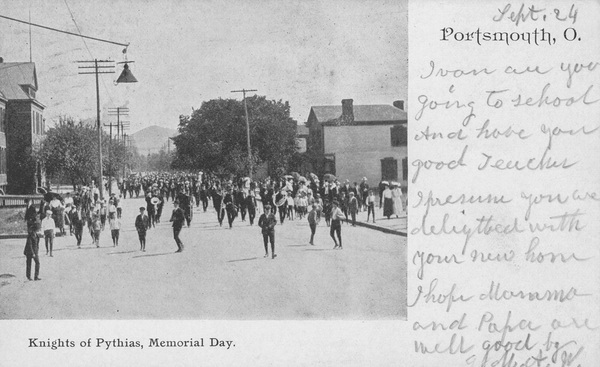 Sept. 24
Portsmouth, O.
Ivan are you
going to school
And have you
good Teacher
I presume you are
deligtbed with
your new home
I hope Mamma
and Papa are
well good by
Knights of Pythias, Memorial Day.